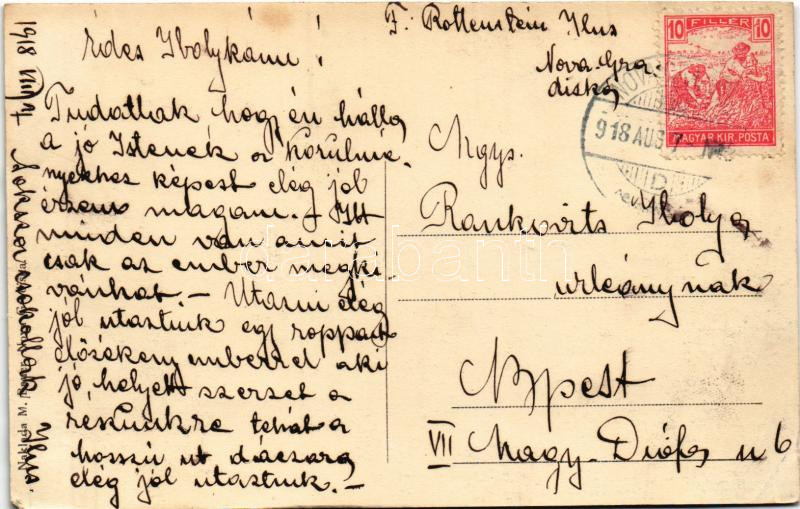 1918 VIII/7
Édes Ibolykám!
Tudathak hogy én hálla
a jó Istenek a körülmé-
nyekhes képest elég jól
érzem magam. - Itt
minden van amit
csak az ember megki-
vánhat. - Utazni elég
jól utaztunk egy roppat
előzékeny emberrel aki
jó helyett szerzet a
reszünkre tehát a
hosszú ut dáczara
elég jól utaztunk. -
Sokszor csokollak Ilus.
F. Rottenstein Ilus
Nova-Gra-
diska
10 FILLER 10
MAGYAR KIR. POSTA
918 AUG 7
Ngys.
Rankovits Ibolya
urleánynak
Bpest
VII Nagy-Diófa u 6
Naklada M.
darabanth